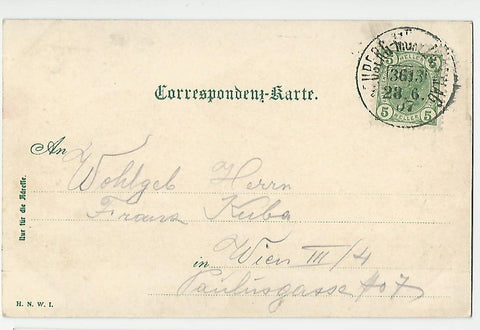 Correspondenz-Karte.
5 HELLER 5
3613
28. 6.
07
An
Wohlgeb Herrn
Franz Kuba
in Wien III/4
Paulusgasse
Nur für die Adresse.
H. N. W. I.